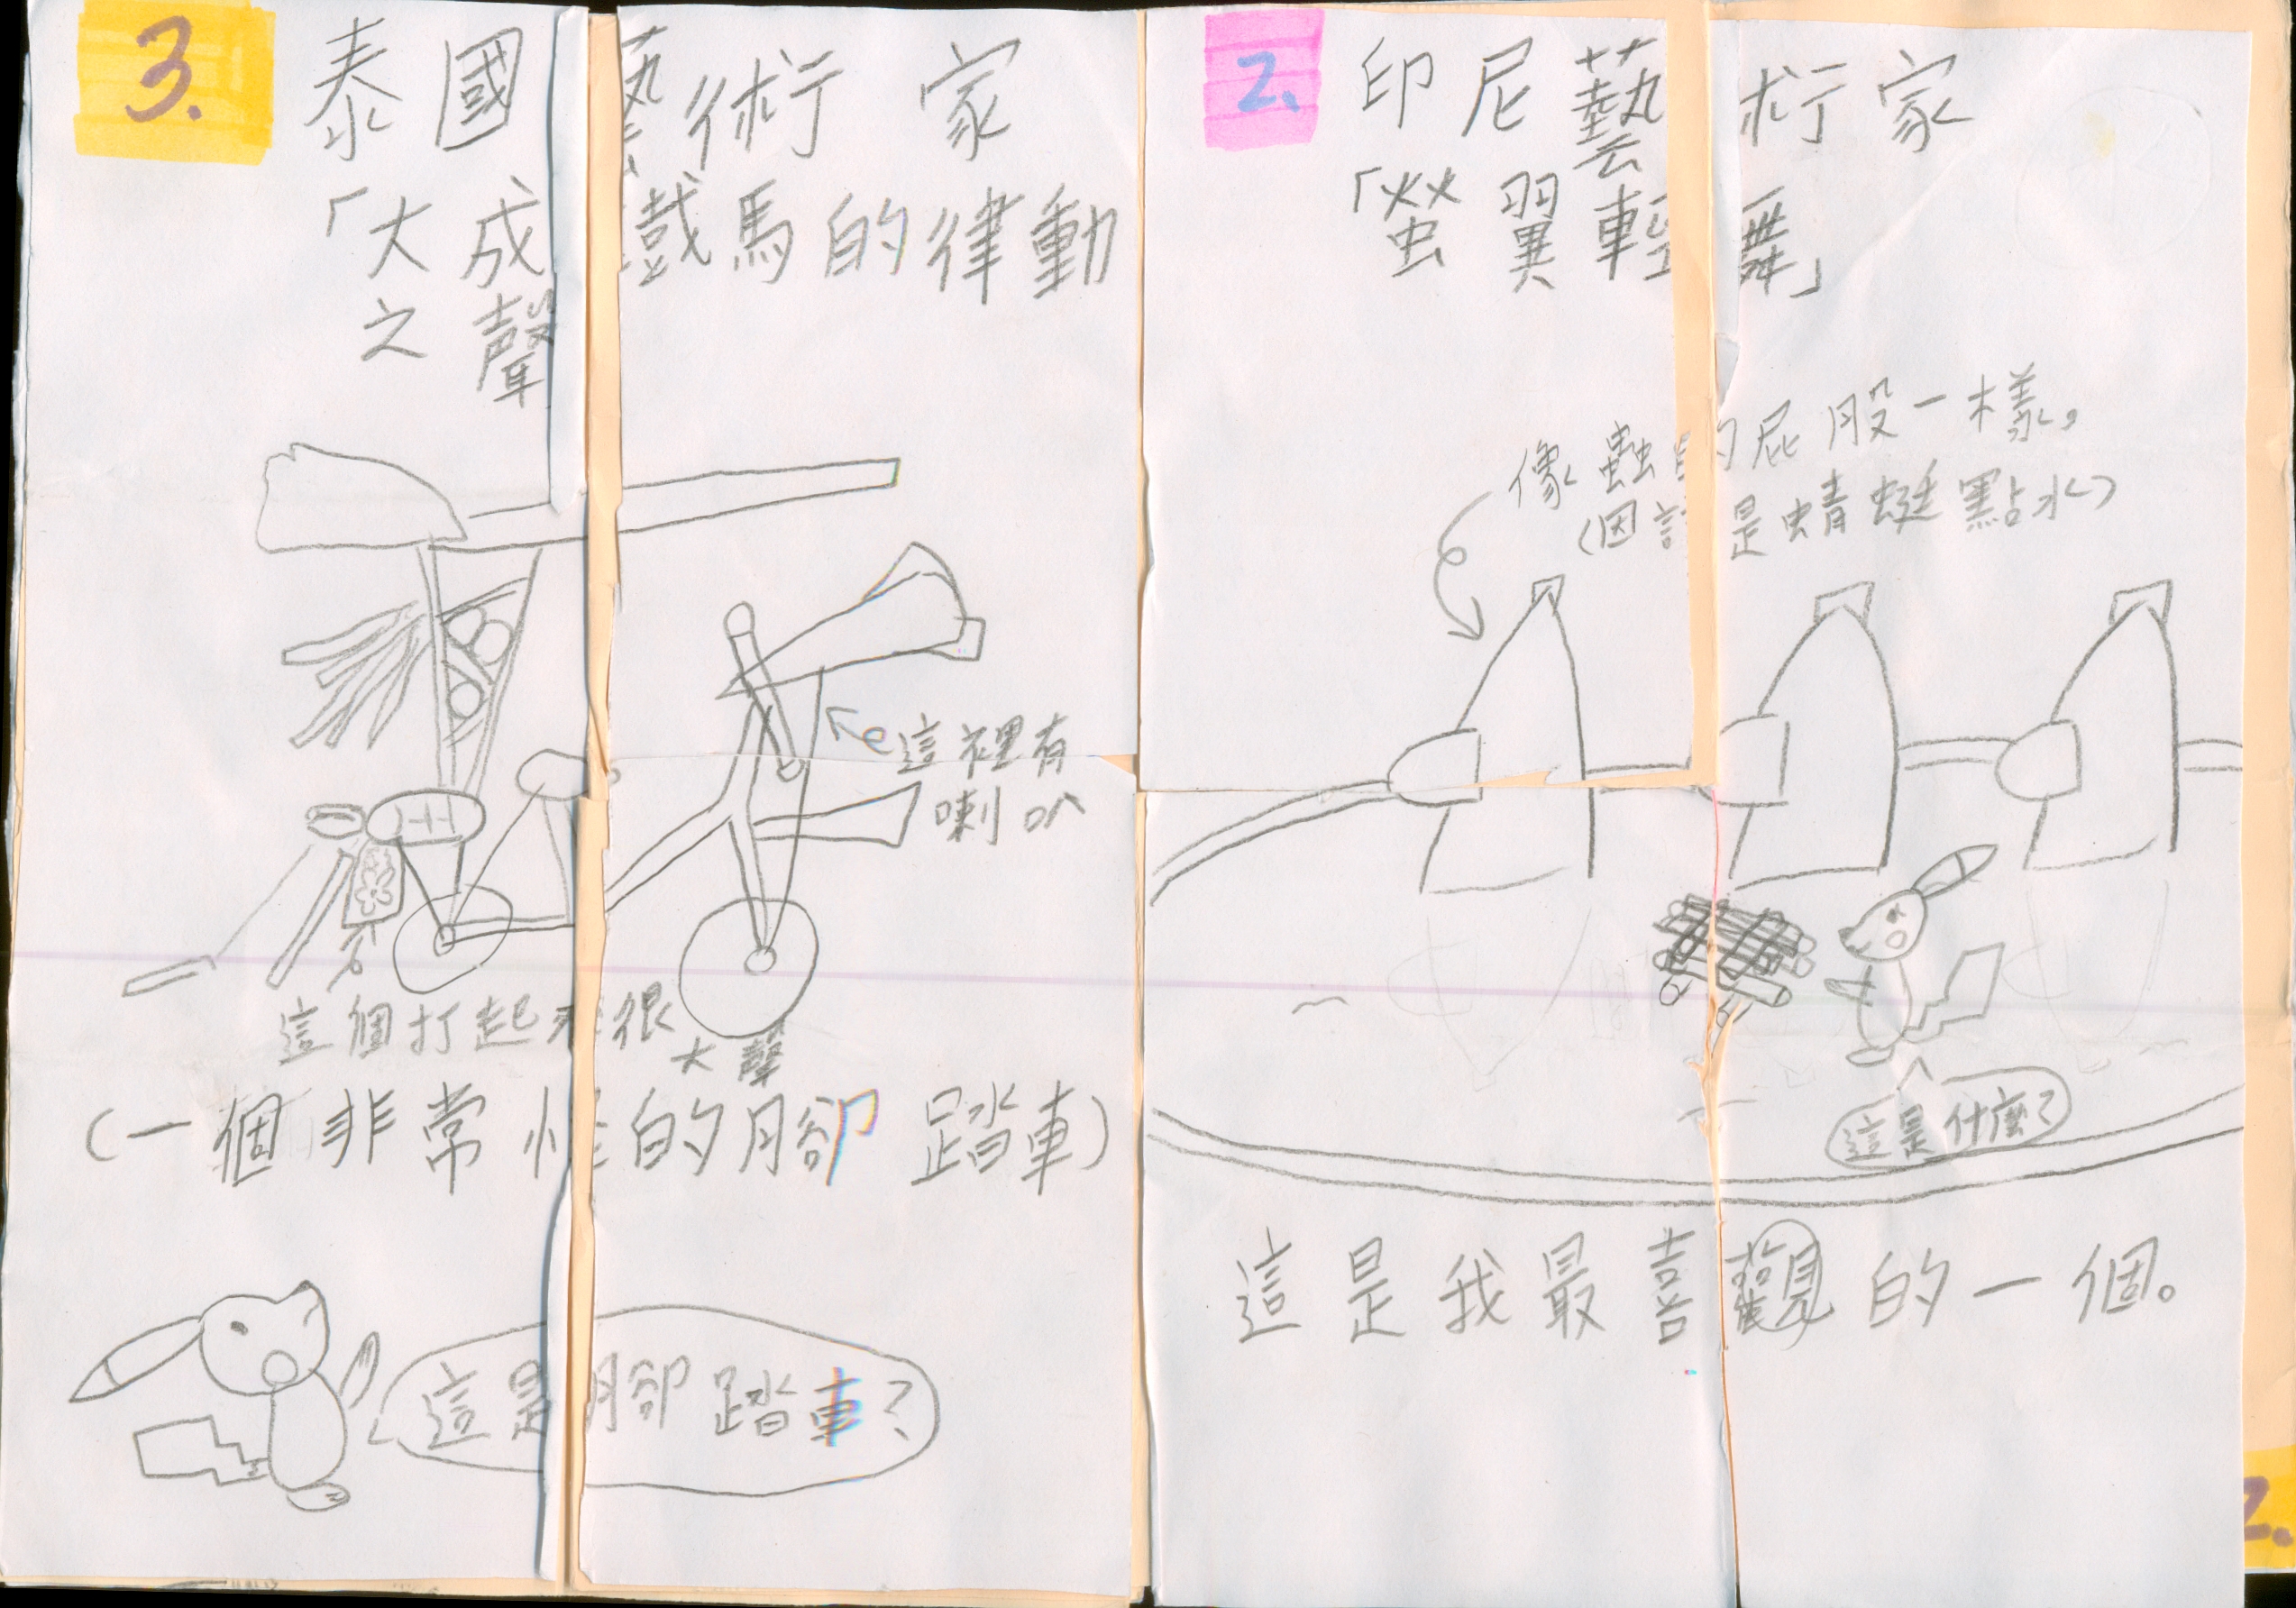 3.
泰國藝術家
「大成 鐵馬的律動
之聲
這裡有
喇叭
這個打起來很
大聲
(一個非常怪的腳踏車)
這是腳踏車?
2.
印尼藝術家
「螢翼輕舞」
像蟲的屁股一樣。
(因 是蜻蜓點水)
這是什麼?
這是我最喜觀的一個。
2.